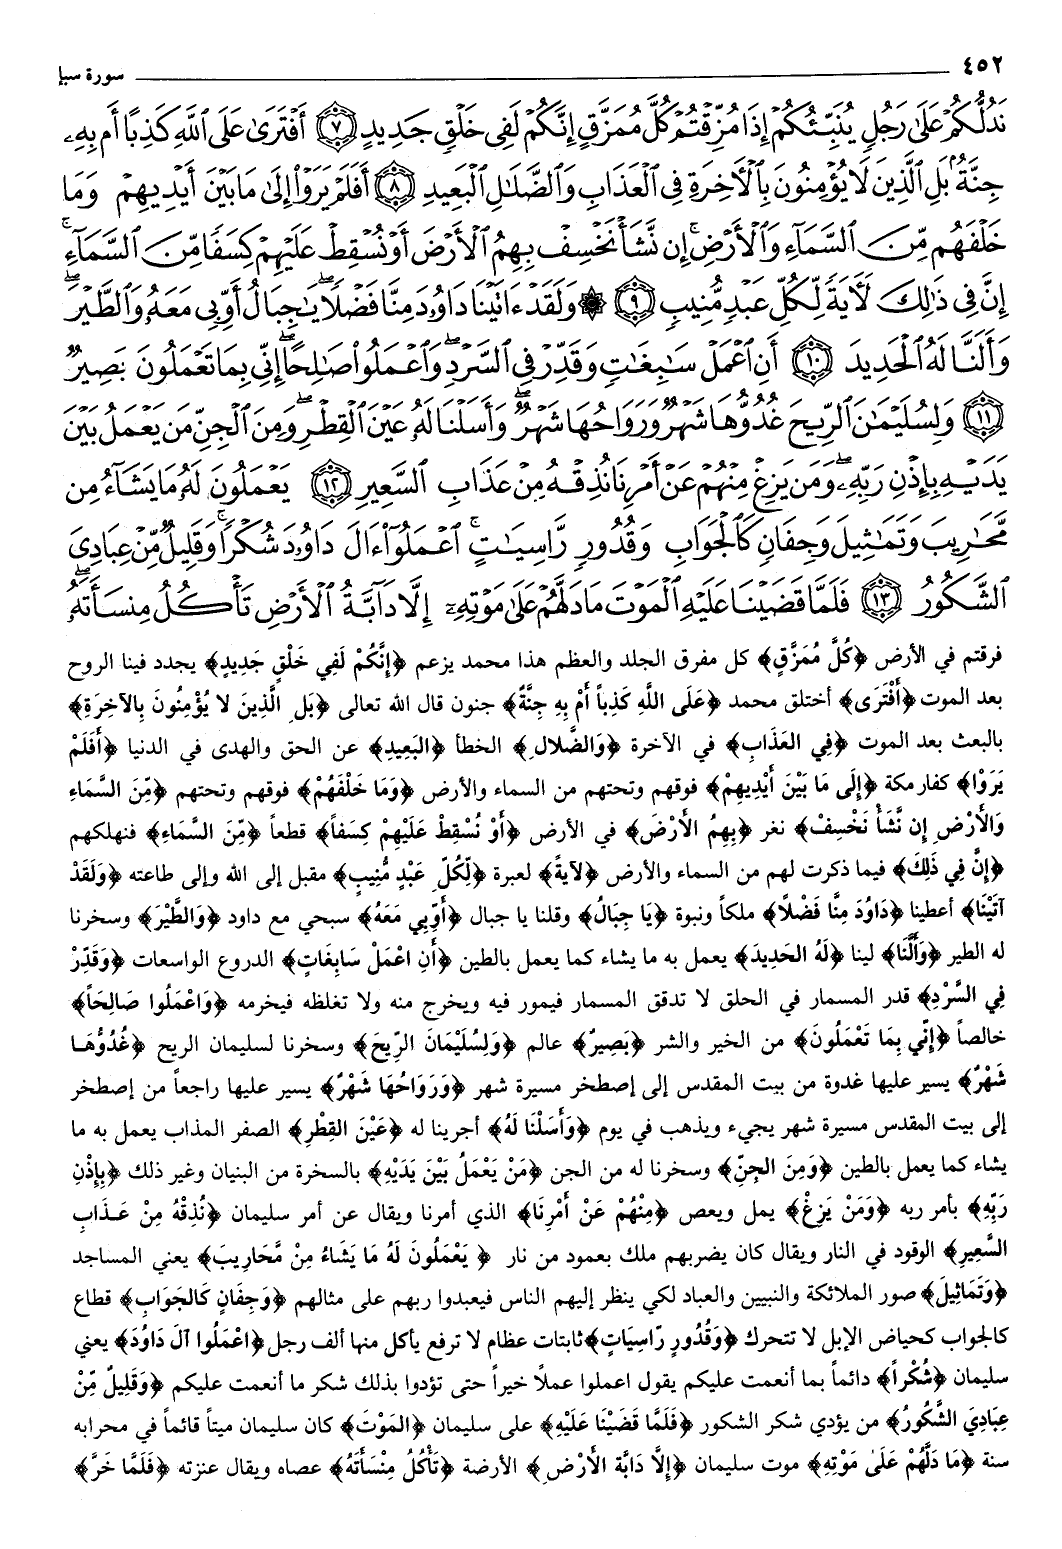 ٤٥٢ سورة سبإ
نَدُلُّكُمْ عَلَىٰ رَجُلٍ يُنَبِّئُكُمْ إِذَا مُزِّقْتُمْ كُلَّ مُمَزَّقٍ إِنَّكُمْ لَفِى خَلْقٍ جَدِيدٍ ﴿٧﴾ أَفْتَرَىٰ عَلَى ٱللَّهِ كَذِبًا أَم بِهِۦ
جِنَّةٌۢ بَلِ ٱلَّذِينَ لَا يُؤْمِنُونَ بِٱلْأَخِرَةِ فِى ٱلْعَذَابِ وَٱلضَّلَٰلِ ٱلْبَعِيدِ ﴿٨﴾ أَفَلَمْ يَرَوْا۟ إِلَىٰ مَا بَيْنَ أَيْدِيهِمْ وَمَا
خَلْفَهُم مِّنَ ٱلسَّمَآءِ وَٱلْأَرْضِ ۚ إِن نَّشَأْ نَخْسِفْ بِهِمُ ٱلْأَرْضَ أَوْ نُسْقِطْ عَلَيْهِمْ كِسَفًا مِّنَ ٱلسَّمَآءِ ۚ
إِنَّ فِى ذَٰلِكَ لَأَيَةً لِّكُلِّ عَبْدٍ مُّنِيبٍ ﴿٩﴾ ۞ وَلَقَدْ ءَاتَيْنَا دَاوُۥدَ مِنَّا فَضْلًا ۖ يَٰجِبَالُ أَوِّبِى مَعَهُۥ وَٱلطَّيْرَ ۖ
وَأَلَنَّا لَهُ ٱلْحَدِيدَ ﴿١٠﴾ أَنِ ٱعْمَلْ سَٰبِغَٰتٍ وَقَدِّرْ فِى ٱلسَّرْدِ ۖ وَٱعْمَلُوا۟ صَٰلِحًا ۖ إِنِّى بِمَا تَعْمَلُونَ بَصِيرٌ
﴿١١﴾ وَلِسُلَيْمَٰنَ ٱلرِّيحَ غُدُوُّهَا شَهْرٌ وَرَوَاحُهَا شَهْرٌ ۖ وَأَسَلْنَا لَهُۥ عَيْنَ ٱلْقِطْرِ ۖ وَمِنَ ٱلْجِنِّ مَن يَعْمَلُ بَيْنَ
يَدَيْهِ بِإِذْنِ رَبِّهِۦ ۖ وَمَن يَزِغْ مِنْهُمْ عَنْ أَمْرِنَا نُذِقْهُ مِنْ عَذَابِ ٱلسَّعِيرِ ﴿١٢﴾ يَعْمَلُونَ لَهُۥ مَا يَشَآءُ مِن
مَّحَٰرِيبَ وَتَمَٰثِيلَ وَجِفَانٍ كَٱلْجَوَابِ وَقُدُورٍ رَّاسِيَٰتٍ ۚ ٱعْمَلُوٓا۟ ءَالَ دَاوُۥدَ شُكْرًا ۚ وَقَلِيلٌ مِّنْ عِبَادِىَ
ٱلشَّكُورُ ﴿١٣﴾ فَلَمَّا قَضَيْنَا عَلَيْهِ ٱلْمَوْتَ مَا دَلَّهُمْ عَلَىٰ مَوْتِهِۦٓ إِلَّا دَآبَّةُ ٱلْأَرْضِ تَأْكُلُ مِنسَأَتَهُۥ ۖ
فرقتم في الأرض ﴿كُلَّ مُمَزَّقٍ﴾ كل مفرق الجلد والعظم هذا محمد يزعم ﴿إِنَّكُمْ لَفِي خَلْقٍ جَدِيدٍ﴾ يجدد فينا الروح
بعد الموت ﴿أَفْتَرَى﴾ أختلق محمد ﴿عَلَى اللَّهِ كَذِباً أَمْ بِهِ جِنَّةٌ﴾ جنون قال الله تعالى ﴿بَلِ الَّذِينَ لا يُؤْمِنُونَ بِالآخِرَةِ﴾
بالبعث بعد الموت ﴿فِي العَذَابِ﴾ في الآخرة ﴿وَالضَّلالِ﴾ الخطأ ﴿البَعِيدِ﴾ عن الحق والهدى في الدنيا ﴿أَفَلَمْ
يَرَوْا﴾ كفار مكة ﴿إِلَى مَا بَيْنَ أَيْدِيهِمْ﴾ فوقهم وتحتهم من السماء والأرض ﴿وَمَا خَلْفَهُمْ﴾ فوقهم وتحتهم ﴿مِّنَ السَّمَاءِ
وَالأَرْضِ إِن نَّشَأْ نَخْسِفْ﴾ نغر ﴿بِهِمُ الأَرْضَ﴾ في الأرض ﴿أَوْ نُسْقِطْ عَلَيْهِمْ كِسَفاً﴾ قطعاً ﴿مِّنَ السَّمَاءِ﴾ فنهلكهم
﴿إِنَّ فِي ذَلِكَ﴾ فيما ذكرت لهم من السماء والأرض ﴿لآيَةً﴾ لعبرة ﴿لِّكُلِّ عَبْدٍ مُّنِيبٍ﴾ مقبل إلى الله وإلى طاعته ﴿وَلَقَدْ
آتَيْنَا﴾ أعطينا ﴿دَاوُدَ مِنَّا فَضْلاً﴾ ملكاً ونبوة ﴿يَا جِبَالُ﴾ وقلنا يا جبال ﴿أَوِّبِي مَعَهُ﴾ سبحي مع داود ﴿وَالطَّيْرَ﴾ وسخرنا
له الطير ﴿وَأَلَنَّا﴾ لينا ﴿لَهُ الحَدِيدَ﴾ يعمل به ما يشاء كما يعمل بالطين ﴿أَنِ اعْمَلْ سَابِغَاتٍ﴾ الدروع الواسعات ﴿وَقَدِّرْ
فِي السَّرْدِ﴾ قدر المسمار في الحلق لا تدقق المسمار فيمور فيه ويخرج منه ولا تغلظه فيخرمه ﴿وَاعْمَلُوا صَالِحاً﴾
خالصاً ﴿إِنِّي بِمَا تَعْمَلُونَ﴾ من الخير والشر ﴿بَصِيرٌ﴾ عالم ﴿وَلِسُلَيْمَانَ الرِّيحَ﴾ وسخرنا لسليمان الريح ﴿غُدُوُّهَا
شَهْرٌ﴾ يسير عليها غدوة من بيت المقدس إلى إصطخر مسيرة شهر ﴿وَرَوَاحُهَا شَهْرٌ﴾ يسير عليها راجعاً من إصطخر
إلى بيت المقدس مسيرة شهر يجيء ويذهب في يوم ﴿وَأَسَلْنَا لَهُ﴾ أجرينا له ﴿عَيْنَ القِطْرِ﴾ الصفر المذاب يعمل به ما
يشاء كما يعمل بالطين ﴿وَمِنَ الجِنِّ﴾ وسخرنا له من الجن ﴿مَنْ يَعْمَلُ بَيْنَ يَدَيْهِ﴾ بالسخرة من البنيان وغير ذلك ﴿بِإِذْنِ
رَبِّهِ﴾ بأمر ربه ﴿وَمَنْ يَزِغْ﴾ يمل ويعص ﴿مِنْهُمْ عَنْ أَمْرِنَا﴾ الذي أمرنا ويقال عن أمر سليمان ﴿نُذِقْهُ مِنْ عَذَابِ
السَّعِيرِ﴾ الوقود في النار ويقال كان يضربهم ملك بعمود من نار ﴿يَعْمَلُونَ لَهُ مَا يَشَاءُ مِنْ مَّحَارِيبَ﴾ يعني المساجد
﴿وَتَمَاثِيلَ﴾ صور الملائكة والنبيين والعباد لكي ينظر إليهم الناس فيعبدوا ربهم على مثالهم ﴿وَجِفَانٍ كَالجَوَابِ﴾ قطاع
كالجواب كحياض الإبل لا تتحرك ﴿وَقُدُورٍ رَّاسِيَاتٍ﴾ ثابتات عظام لا ترفع يأكل منها ألف رجل ﴿اعْمَلُوا آلَ دَاوُدَ﴾ يعني
سليمان ﴿شُكْراً﴾ دائماً بما أنعمت عليكم يقول اعملوا عملاً خيراً حتى تؤدوا بذلك شكر ما أنعمت عليكم ﴿وَقَلِيلٌ مِّنْ
عِبَادِيَ الشَّكُورُ﴾ من يؤدي شكر الشكور ﴿فَلَمَّا قَضَيْنَا عَلَيْهِ﴾ على سليمان ﴿المَوْتَ﴾ كان سليمان ميتاً قائماً في محرابه
سنة ﴿مَا دَلَّهُمْ عَلَىٰ مَوْتِهِ﴾ موت سليمان ﴿إِلاَّ دَابَّةُ الأَرْضِ﴾ الأرضة ﴿تَأْكُلُ مِنْسَأَتَهُ﴾ عصاه ويقال عنزته ﴿فَلَمَّا خَرَّ﴾